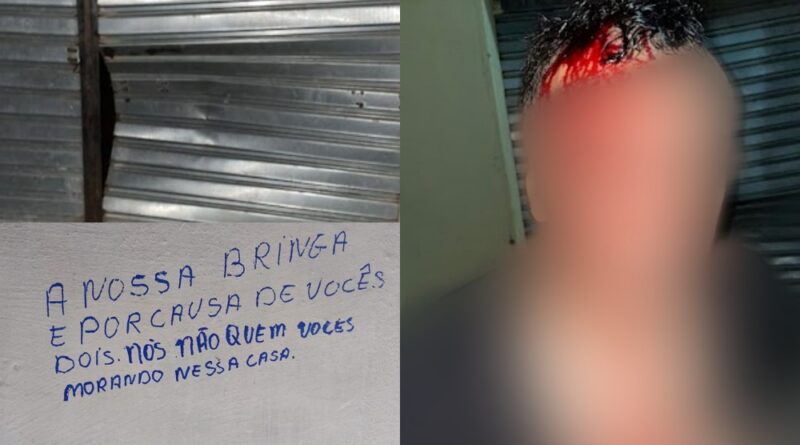 A NOSSA BRINGA
E POR CAUSA DE VOCÊS
DOIS. NÓS NÃO QUEM VOCES
MORANDO NESSA CASA.